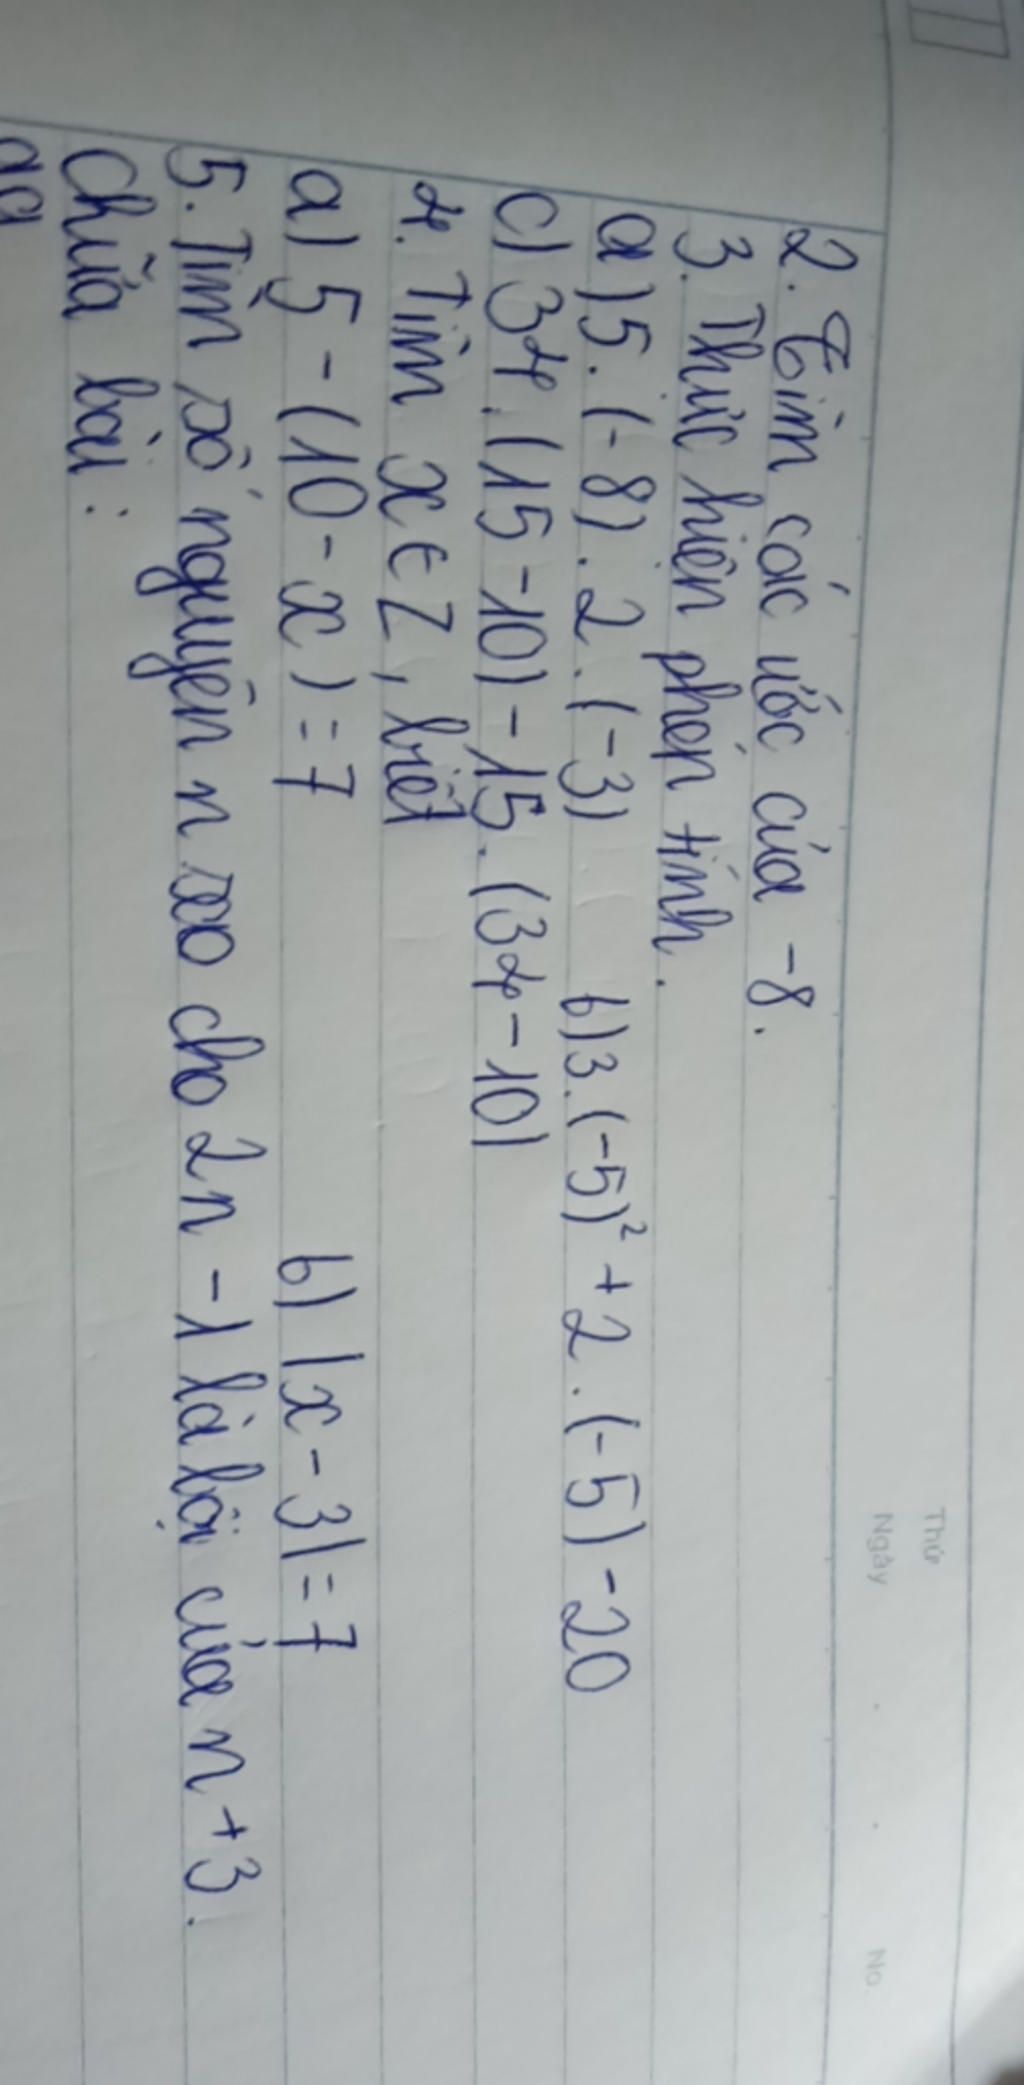 Thứ
Ngày
No.
2. Tìm các ước của -8.
3. Thực hiện phép tính.
a) 5. (-8). 2. (-3) b) 3. (-5)² + 2. (-5) - 20
c) 34. (15 - 10) - 15. (34 - 10)
4. Tìm x ∈ Z, biết
a) 5 - (10 - x) = 7 b) |x - 3| = 7
5. Tìm số nguyên n sao cho 2n - 1 là bội của n + 3.
Chữa bài: